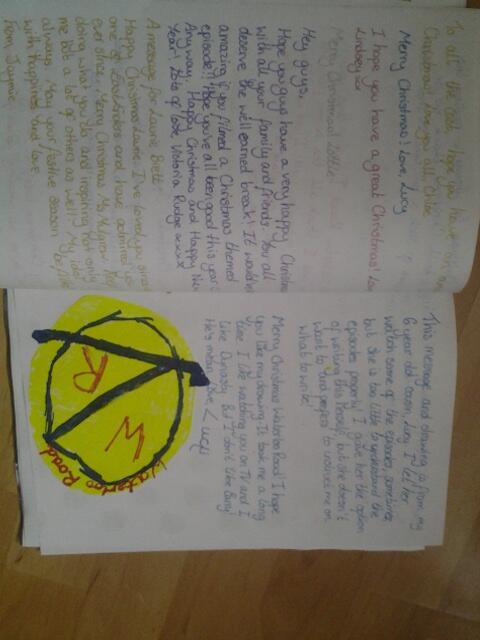 To all the cast, hope you have an
Christmas! Love you all Chloe
Merry Christmas! Love, Lucy
I hope you have a great Christmas!
Lindsey x
Merry Christmas!
Hey guys,
Hope you guys have a very happy
with all your family and friends. You all
deserve the well earned break! It would
amazing if you filmed a Christmas themed
episode!! Hope you've all been good this year
Anyway, Happy Christmas and Happy New
Year! Lots of love Victoria Rudge xxxxx
A message for Laurie Brett:
Happy Christmas Laurie. I've loved you since
one of and have admired you
ever since. Merry Christmas
doing what you do and inspiring not only
me but a lot of others as well! My idol
always. May your festive season be filled
with happiness and love.
From, Jaymie
This message and drawing is from my
6 year old cousin, Lucy. I let her
watch some of the episodes sometimes
but she is too little to understand the
episodes properly! I gave her the option
of writing this herself but she doesn't
want to and prefers to instruct me on
what to write!
Merry Christmas Waterloo Road! I hope
you like my drawing. It took me a long
time. I like watching you on TV and I
like Dynasty. But I don't like Barry!
He's mean. Love Lucy
W
R
Waterloo Road